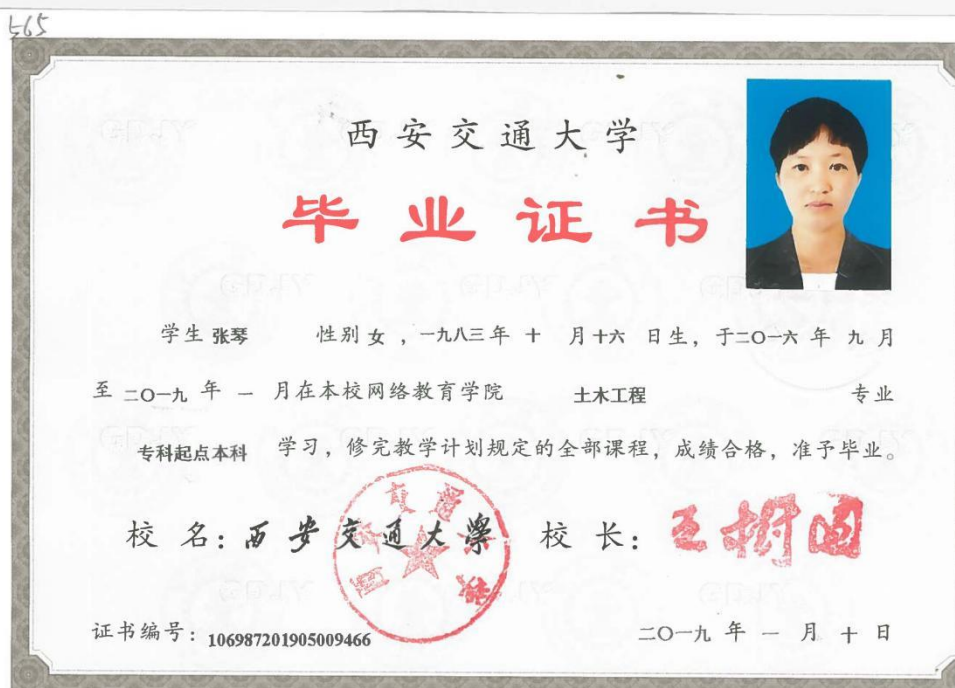 565
西安交通大学
毕业证书
学生 张琴 性别 女 ，一九八三年 十 月十六 日生，于二〇一六 年 九 月
至 二〇一九 年 一 月在本校网络教育学院 土木工程 专业
专科起点本科 学习，修完教学计划规定的全部课程，成绩合格，准予毕业。
校 名：西安交通大學 校 长：王树国
证书编号：106987201905009466 二〇一九 年 一 月 十 日